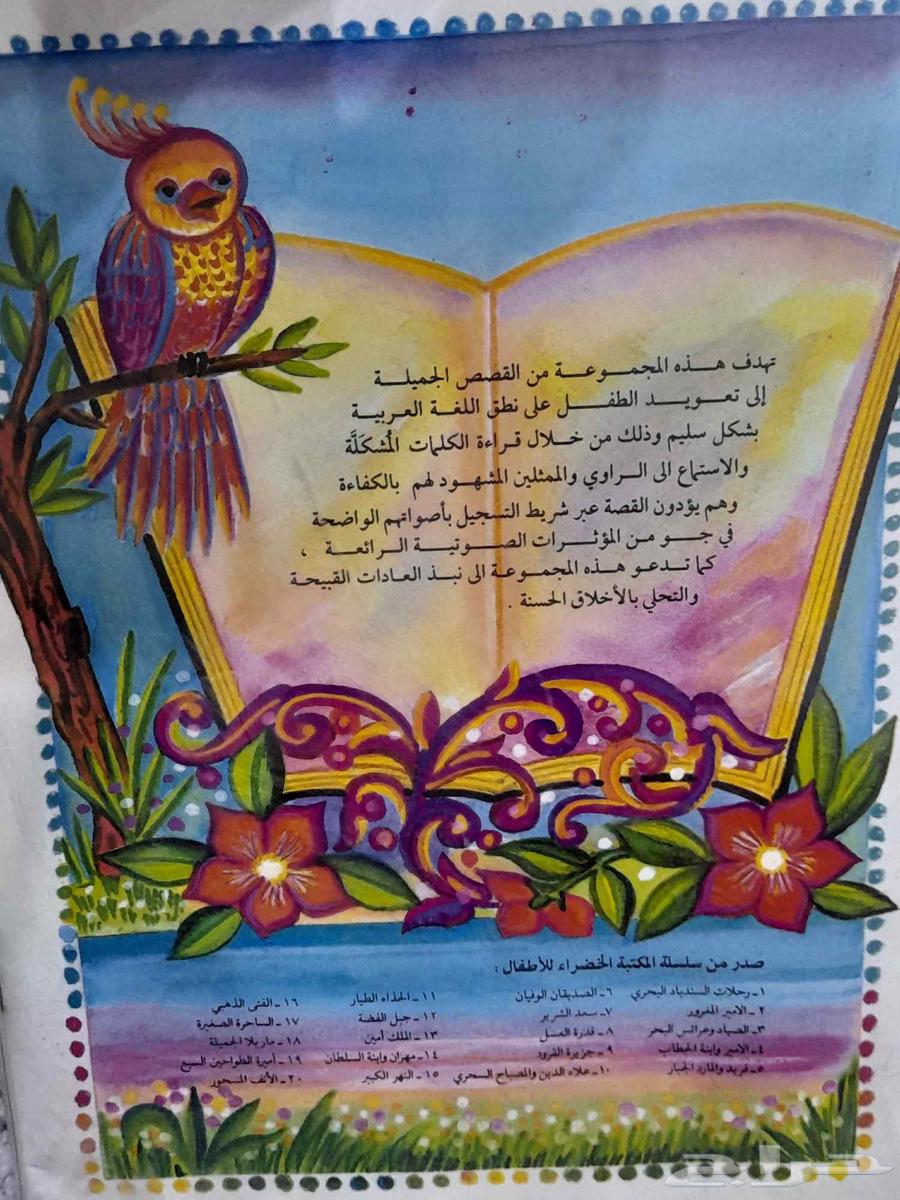 تهدف هذه المجموعة من القصص الجميلة
إلى تعويد الطفل على نطق اللغة العربية
بشكل سليم وذلك من خلال قراءة الكلمات المُشكَلَّة
والاستماع الى الراوي والممثلين المشهود لهم بالكفاءة
وهم يؤدون القصة عبر شريط التسجيل بأصواتهم الواضحة
في جو من المؤثرات الصوتية الرائعة ،
كما تدعو هذه المجموعة الى نبذ العادات القبيحة
والتحلي بالأخلاق الحسنة .
صدر من سلسلة المكتبة الخضراء للأطفال :
١ـ رحلات السندباد البحري
٢ـ الامير المغرور
٣ـ الصياد وعرائس البحر
٤ـ الامير وابنة الحطاب
٥ـ فريد والمارد الجبار
٦ـ الصديقان الوفيان
٧ـ سعد الشرير
٨ـ قدرة العسل
٩ـ جزيرة القرود
١٠ـ علاء الدين والمصباح السحري
١١ـ الحذاء الطيار
١٢ـ جبل الفضة
١٣ـ الملك أمين
١٤ـ مهران وابنة السلطان
١٥ـ النهر الكبير
١٦ـ الفتى الذهبي
١٧ـ الساحرة الصغيرة
١٨ـ ماربلا الجميلة
١٩ـ أميرة الطواحين السبع
٢٠ـ الأنف المسحور
حراج